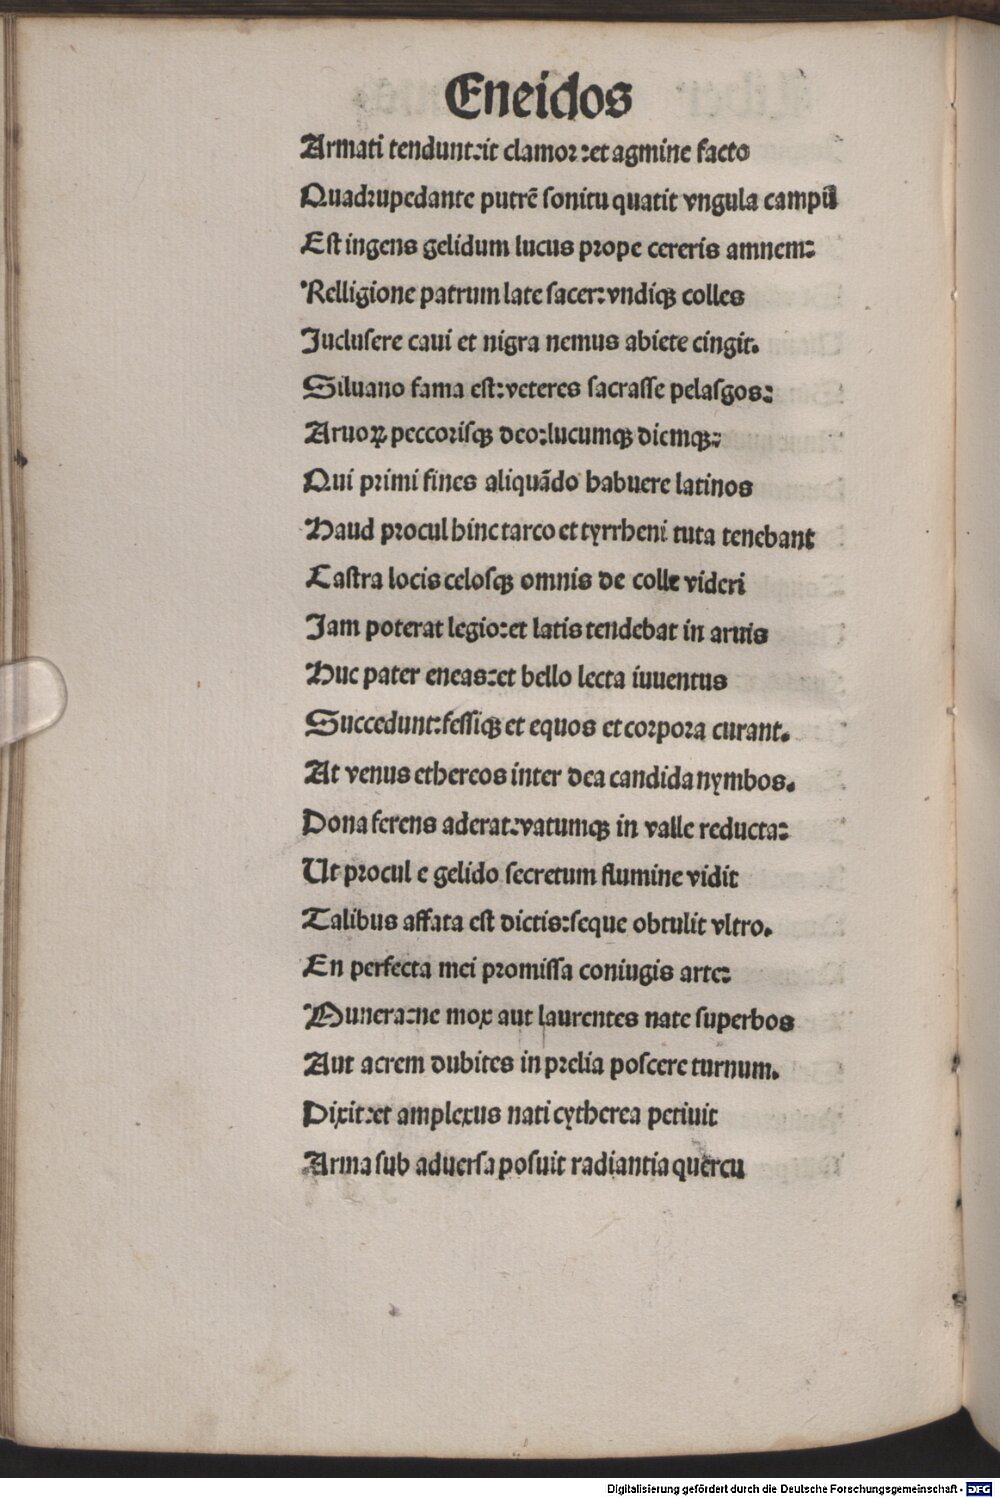 Eneidos
Armati tendunt:it clamor:et agmine facto
Quadrupedante putrē sonitu quatit vngula campū
Est ingens gelidum lucus prope cereris amnem:
Relligione patrum late sacer:vndiqꝫ colles
Juclusere caui et nigra nemus abiete cingit.
Siluano fama est:veteres sacrasse pelasgos:
Aruoꝝ peccorisqꝫ deo:lucumqꝫ diemqꝫ:
Qui primi fines aliquādo habuere latinos
Haud procul hinc tarco et tyrrheni tuta tenebant
Castra locis celosqꝫ omnis de colle videri
Jam poterat legio:et latis tendebat in aruis
Huc pater eneas:et bello lecta iuuentus
Succedunt:fessiqꝫ et equos et corpora curant.
At venus ethereos inter dea candida nymbos.
Dona ferens aderat:vatumqꝫ in valle reducta:
Ut procul e gelido secretum flumine vidit
Talibus affata est dictis:seque obtulit vltro.
En perfecta mei promissa coniugis arte:
Munera:ne mox aut laurentes nate superbos
Aut acrem dubites in prelia poscere turnum.
Dixit:et amplexus nati cytherea petiuit
Arma sub aduersa posuit radiantia quercu
Digitalisierung gefördert durch die Deutsche Forschungsgemeinschaft - DFG